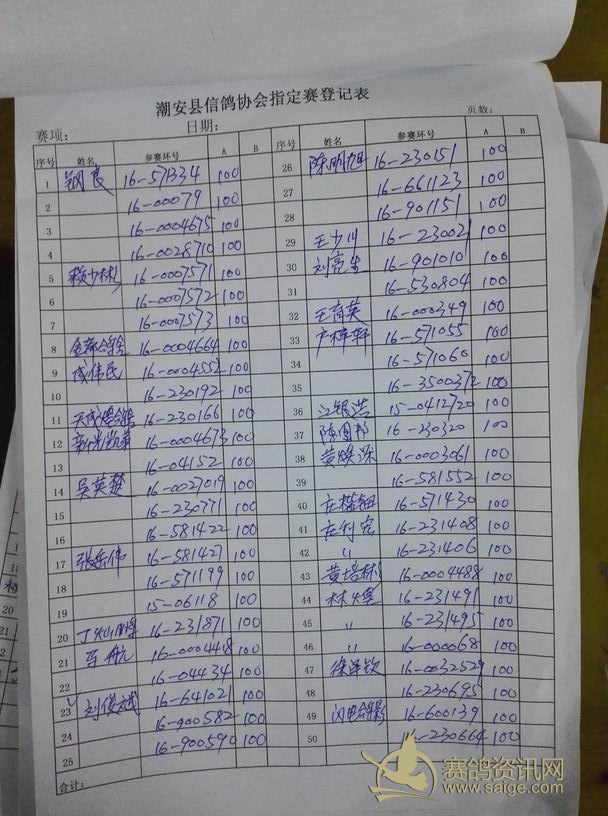 潮安县信鸽协会指定赛登记表
赛项: 日期: 页数:
序号 姓名 参赛环号 A B 序号 姓名 参赛环号 A B
1 钢良 16-571334 100 26 陈明旭 16-230151 100
2 16-00079 100 27 16-661123 100
3 16-0004675 100 28 16-901151 100
4 16-0028710 100 29 王少川 16-23002 100
5 赖少彬 16-0007571 100 30 刘亮生 16-901010 100
6 16-0007572 100 31 16-530804 100
7 16-0007573 100 32 王育英 16-000349 100
8 16-0004664 100 33 卢梓轩 16-571055 100
9 伟民 16-0004552 100 34 16-571060 100
10 16-230192 100 35 16-3500372 100
11 16-230166 100 36 江银浩 15-0412720 100
12 16-0004673 100 37 陈图邦 16-230320 100
13 16-04152 100 38 黄焕深 16-0003061 100
14 吴英楚 16-0027019 100 39 16-581552 100
15 16-230771 100 40 庄楷钿 16-571430 100
16 16-581422 100 41 16-231408 100
17 张岳伟 16-581427 100 42 〃 16-231406 100
18 16-571199 100 43 黄培彬 16-0004488 100
19 15-06118 100 44 16-231491 100
20 16-231871 100 45 〃 16-231495 100
21 航 16-0004418 100 46 〃 16-000068 100
22 16-04434 100 47 徐泽钦 16-0032529 100
23 刘俊斌 16-641021 100 48 16-230695 100
24 16-900582 100 49 闪电 16-600139 100
25 16-900590 100 50 16-230664 100
合计:
赛鸽资讯网
www.saige.com